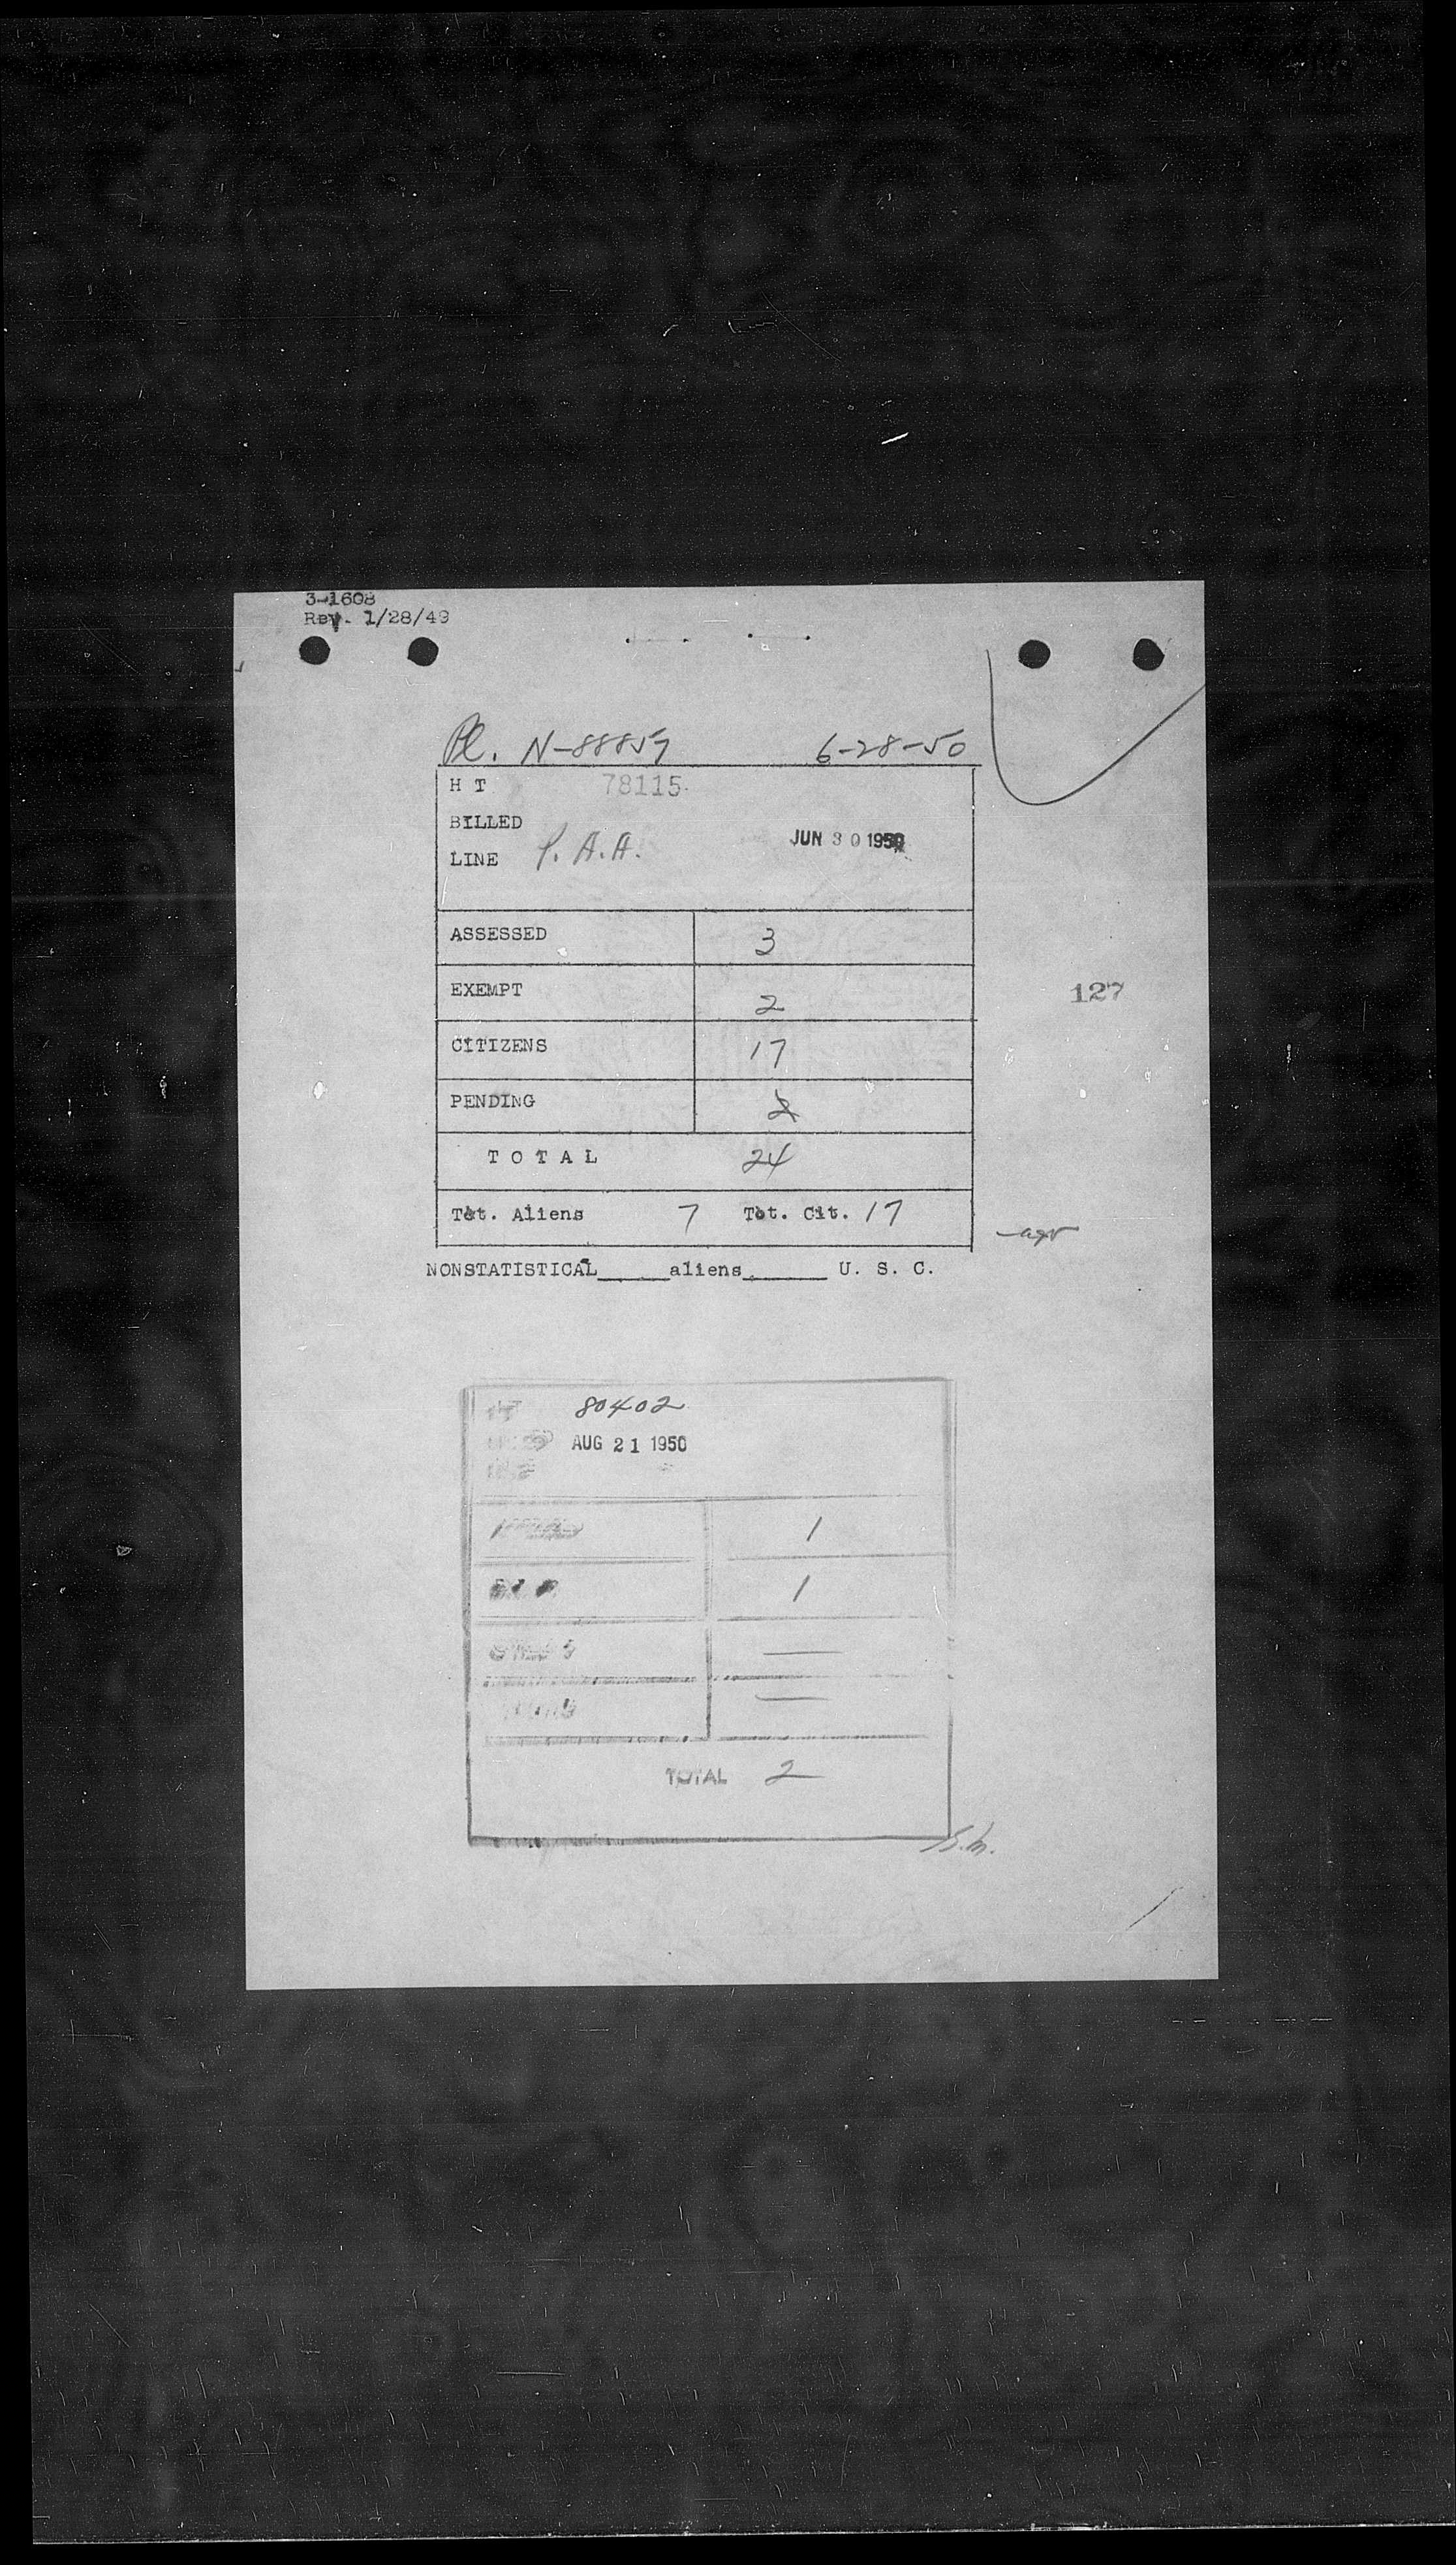 3-1608
Rev. 1/28/49
Pl. N-88857 6-28-50
H T 78115
BILLED
LINE P.A.A. JUN 30 1950
ASSESSED 3
EXEMPT 2
127
CITIZENS 17
PENDING 2
TOTAL 24
Tot. Aliens 7 Tot. Cit. 17
NONSTATISTICAL_____aliens______ U. S. C.
80402
AUG 21 1950
1
1
—
—
TOTAL 2